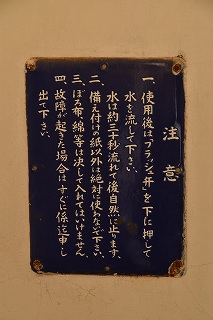 注意
一、使用後は"フラッシュ弁"を下に押して
水を流して下さい。
水は約三十秒流れて後自然に止ります。
二、備え付けの紙以外は絶対に使わないで下さい。
三、ぼろ布、綿等は決して入れてはいけません。
四、故障が起きた場合はすぐに係迄申し
出て下さい。